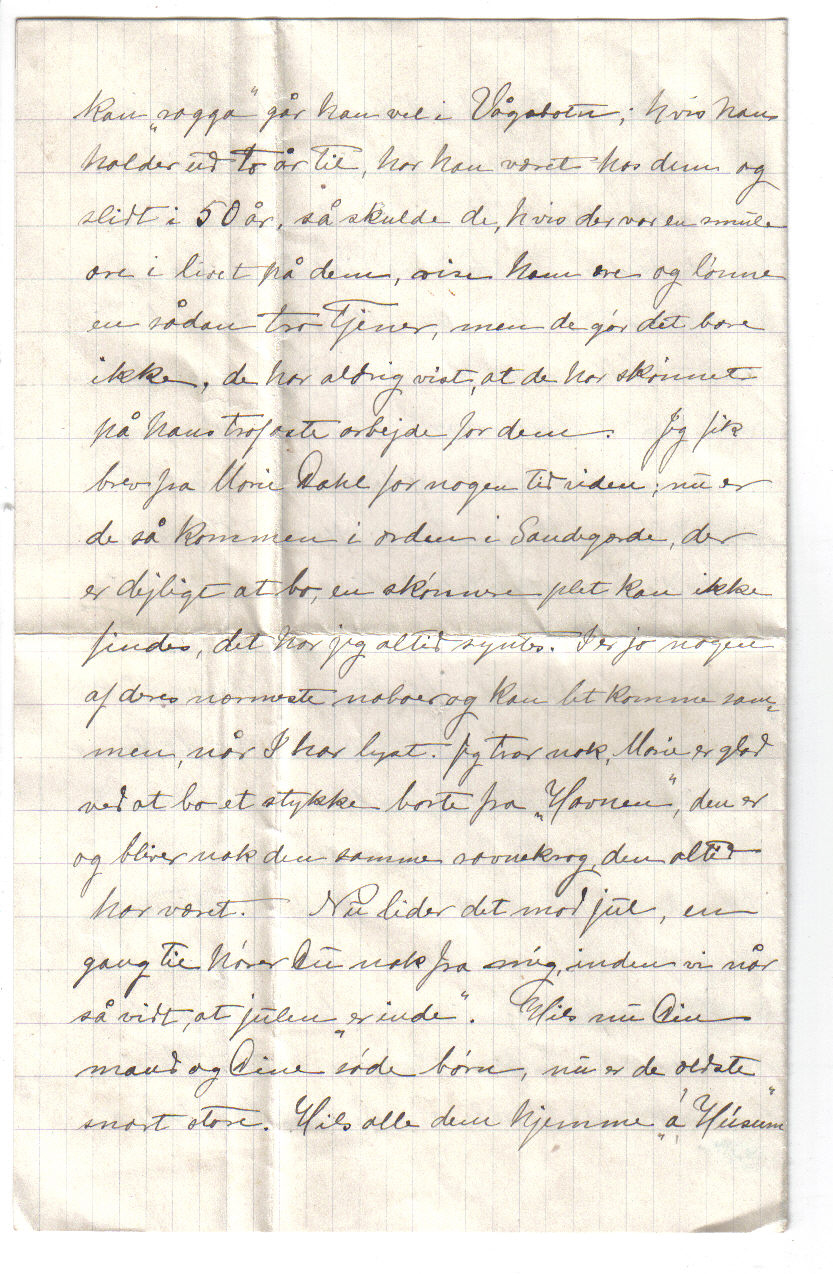 kan „ragga" går han vel i Vågsbotn; hvis han
holder ud to år til, har han været hos dem og
slidt i 50 år, så skulde de, hvis der var en smule
ære i livet på dem, vise ham ære og lønne
en sådan tro Tjener, men de gør det bare
ikke, de har aldrig vist, at de har skønnet
på hans trofaste arbejde for dem. Jeg fik
brev fra Marie Dahl for nogen tid siden; nu er
de så kommen i orden i Sandegærde, der
er dejligt at bo, en skønnere plet kan ikke
findes, det har jeg altid syntes. I er jo nogen
af deres nærmeste naboer og kan let komme sam-
men, når I har lyst. Jeg tror nok, Marie er glad
ved at bo et stykke borte fra „Havnen", den er
og bliver nok den samme ravnekrog, den altid
har været. Nu lider det mod jul, en
gang til hører Du nok fra mig, inden vi når
så vidt, at julen „er inde". Hils nu Din
mand og Dine søde børn, nu er de ældste
snart store. Hils alle dem hjemme „á Húsum"